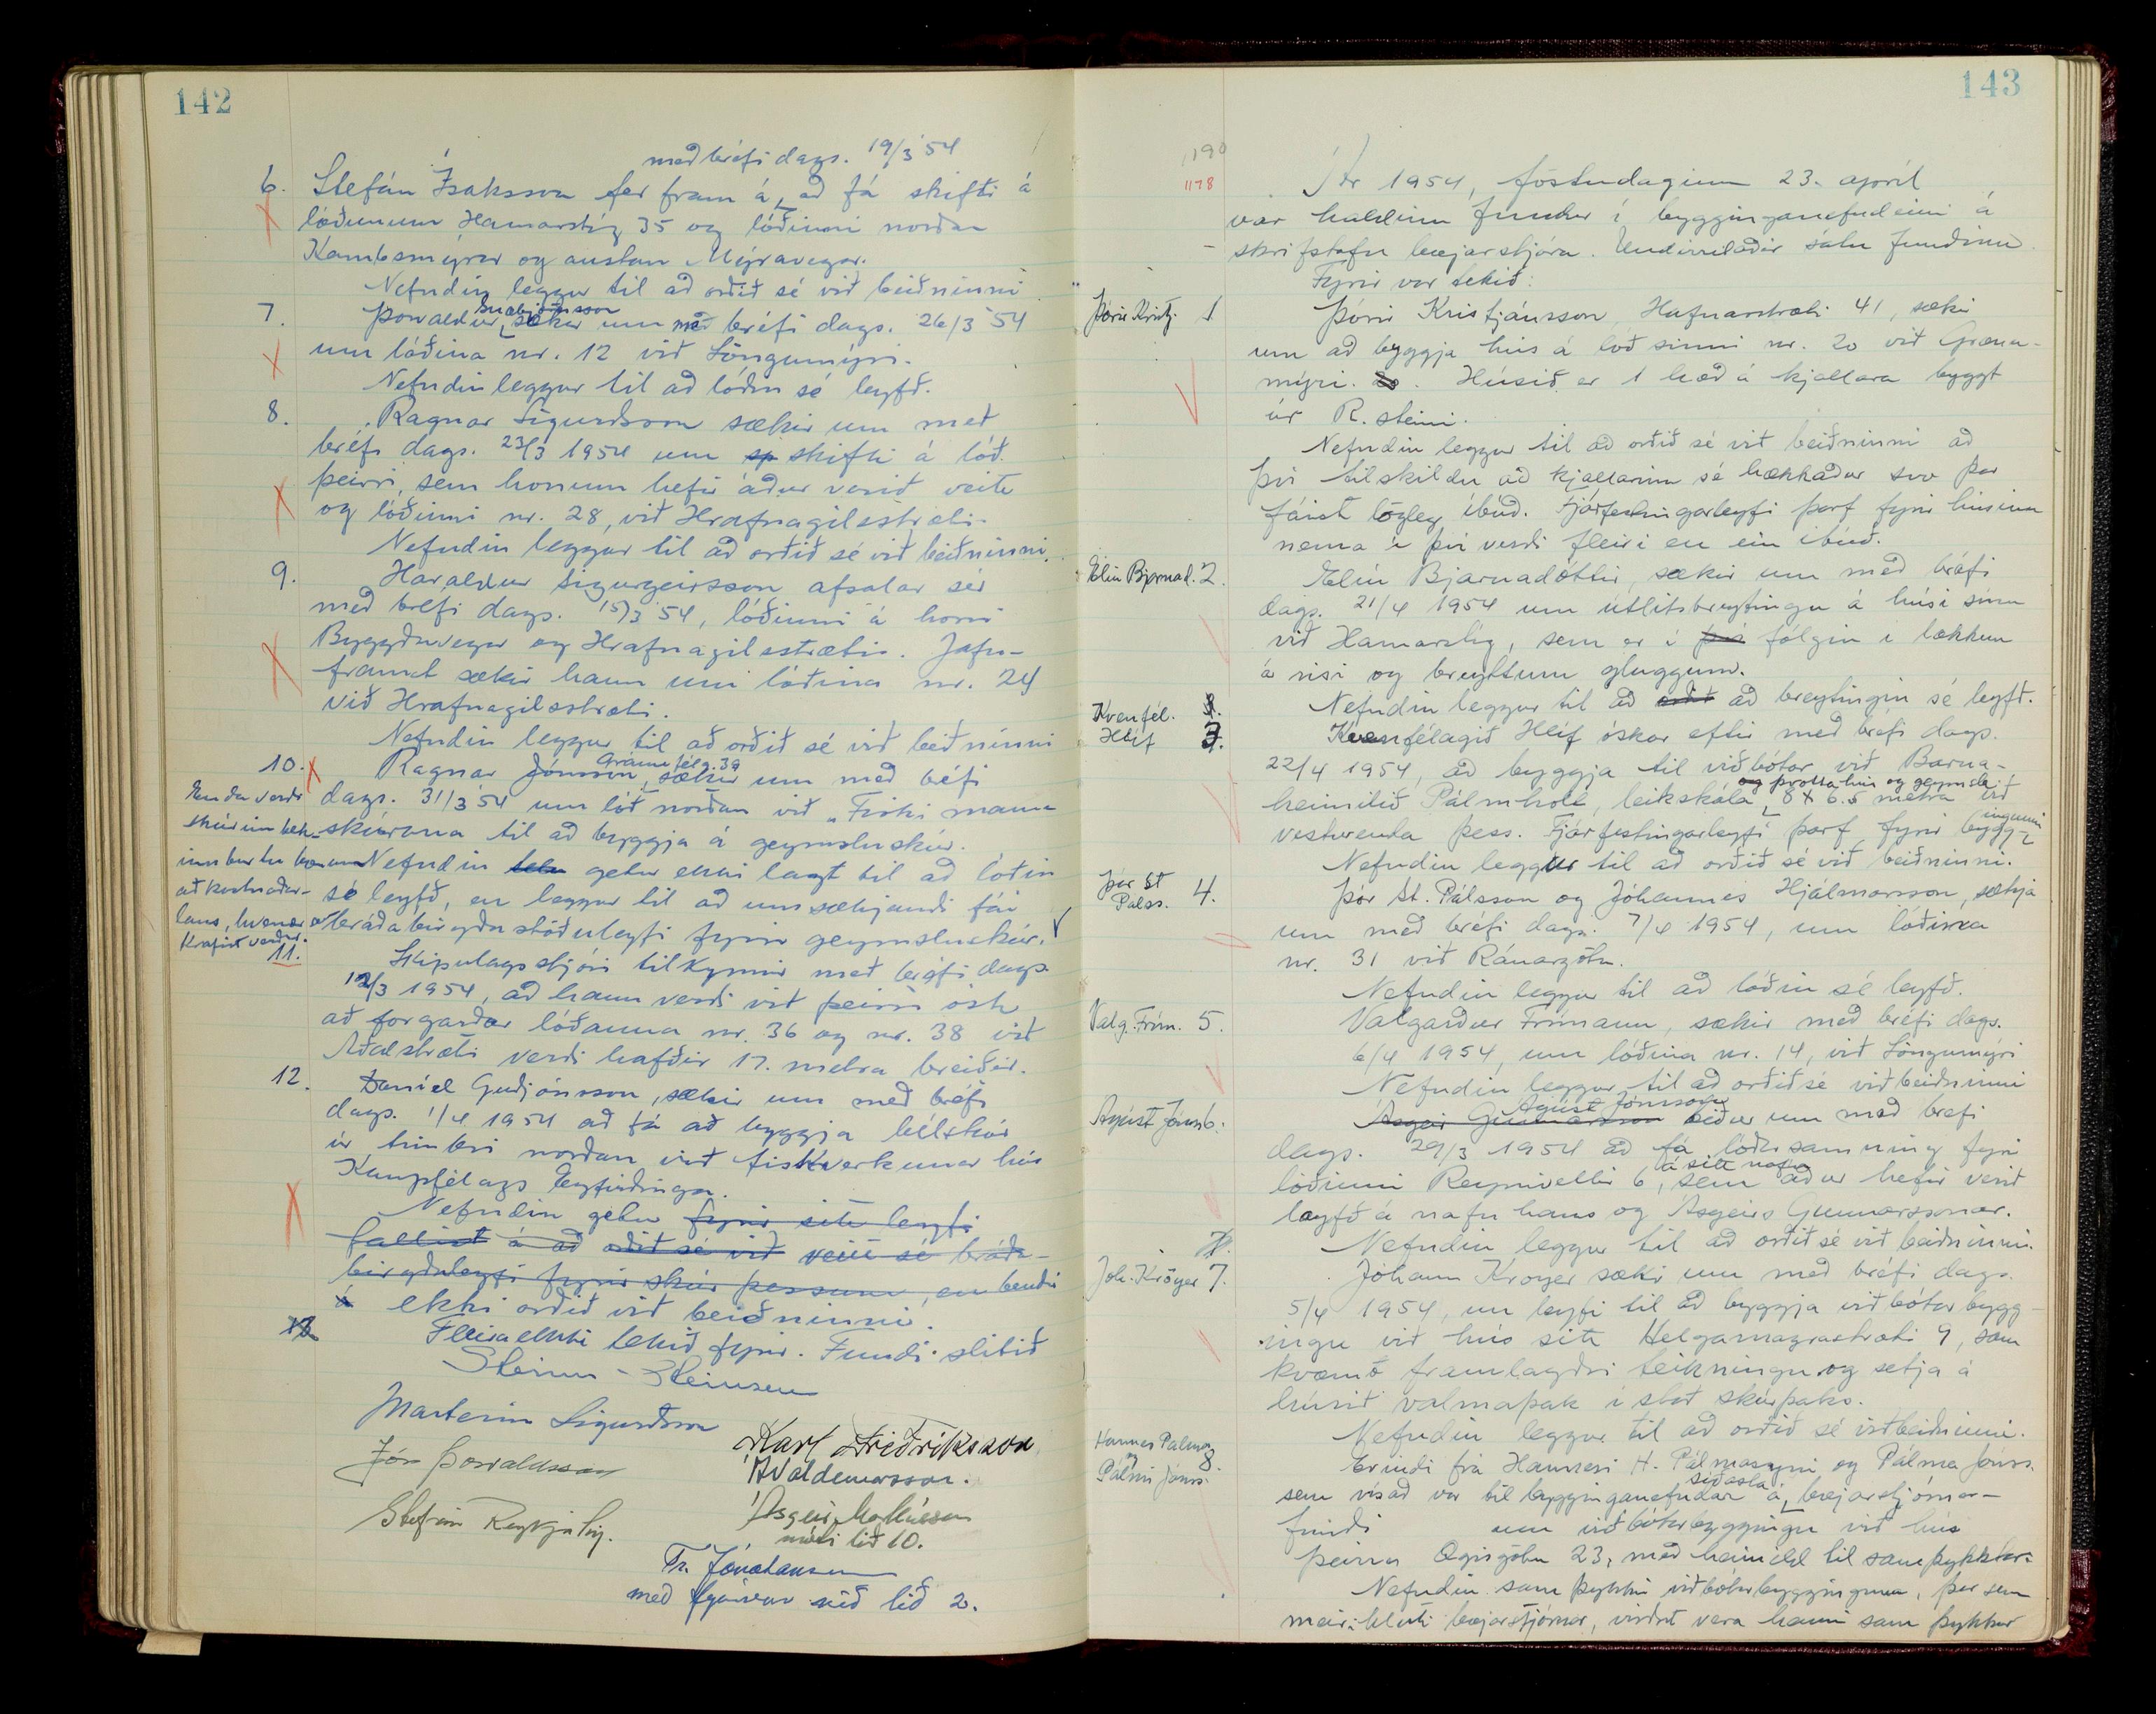 142
með bréfi dags. 19/3 '54
6. Stefán Ísaksson fer fram á, að fá skifti á
lóðunum Hamarstíg 35 og lóðinni norðan
Kambsmýrar og austan Mýravegar.
Nefndin leggur til að orðið sé við beiðninni
Snæbjörnsson
7. Þorvaldur, sækir um með bréfi dags. 26/3 '54
um lóðina nr. 12 við Löngumýri.
Nefndin leggur til að lóðin sé leyfð.
8. Ragnar Sigurðsson sækir um með
bréfi dags. 23/3 1954 um sp skifti á lóð
þeirri, sem honum hefir áður verið veitt
og lóðinni nr. 28, við Hrafnagilsstræti.
Nefndin leggur til að orðið sé við beiðninni.
9. Haraldur Sigurgeirsson afsalar sér
með bréfi dags. 15/3 '54, lóðinni á horni
Byggðavegar og Hrafnagilsstrætis. Jafn-
framt sækir hann um lóðina nr. 24
við Hrafnagilsstræti.
Nefndin leggur til að orðið sé við beiðninni
Gránufélg. 39
10. Ragnar Jónsson, sækir um með béfi
dags. 31/3 '54 um lóð norðan við „Fiski manna
skúrana til að byggja á geymsluskúr.
Nefndin getur ekki lagt til að lóðin
sé leyfð, en leggur til að umsækjandi fái
bráðabirgðastöðuleyfi fyrir geymsluskúr. ✓
Enda verði
skúrinn tek-
inn burtu bænum
að kostnaðar-
lausu, hvenær er
krafist verður.
11. Skipulagsstjóri tilkynnir með bréfi dags.
12/3 1954, að hann verði við þeirri ósk
að forgarðar lóðanna nr. 36 og nr. 38 við
Aðalstræti verði hafðir 17. metra breiðir.
12. Daníel Guðjónsson, sækir um með bréfi
dags. 1/4 1954 að fá að byggja bílskúr
úr timbri norðan við fiskverkunar hús
Kaupfélags Eyfirðinga.
Nefndin getur fyrir sitt leyti
fallist á að orðið sé við veitt sé bráða-
birgðaleyfi fyrir skúr þessum, en bendir
á ekki orðið við beiðninni.
13. Fleira ekki tekið fyrir. Fundi slitið
Steinn Steinsen
Marteinn Sigurðsson
Karl Friðriksson
Jón Þorvaldsson
Á Valdemarsson.
Stefán Reykjalín.
Ásgeir Markússon
móti lið 10.
Tr. Jónatansson
með fyrirvara við lið 2.
143
1190
1178
Ár 1954, föstudaginn 23. apríl
var haldinn fundur í bygginganefndinni á
skrifstofu bæjarstjóra. Undirritaðir sátu fundinn.
Fyrir var tekið:
Þórir Kristj. 1. Þórir Kristjánsson, Hafnarstræti 41, sækir
um að byggja hús á lóð sinni nr. 20 við Grænu-
mýri. 20. Húsið er 1 hæð á kjallara byggt
úr R. steini.
Nefndin leggur til að orðið sé við beiðninni að
því tilskildu að kjallarinn sé hækkaður svo þar
fáist lögleg íbúð. Fjárfestingarleyfi þarf fyrir húsinu
nema í því verði fleiri en ein íbúð.
Elín Bjarnad. 2. Elín Bjarnadóttir, sækir um með bréfi
dags. 21/4 1954 um útlitsbreytingu á húsi sínu
við Hamarstíg, sem er í því fólgin í lækkun
á risi og breyttum gluggum.
Nefndin leggur til að orðið að breytingin sé leyfð.
Kvenfél.
Hlíf 3. Kvenfélagið Hlíf óskar eftir með bréfi dags.
22/4 1954, að byggja til viðbótar við Barna-
og þvottahús og geymslu
heimilið Pálmholt, leikskála, 8 x 6.5 metra við
vesturenda þess. Fjárfestingarleyfi þarf fyrir bygg-
ingunni
Nefndin leggur til að orðið sé við beiðninni.
Þór St
Pálss. 4. Þór St. Pálsson og Jóhannes Hjálmarsson, sækja
um með bréfi dags. 7/4 1954, um lóðina
nr. 31 við Ránargötu.
Nefndin leggur til að lóðin sé leyfð.
Valg. Frím. 5. Valgarður Frímann, sækir með bréfi dags.
6/4 1954, um lóðina nr. 14, við Löngumýri
Nefndin leggur til að orðið sé við beiðninni
Ágúst Jónsson
Ágúst Jónss 6. Ásgeir Gunnarsson biður um með bréfi
dags. 29/3 1954 að fá lóðarsamning fyrir
á sitt nafn
lóðinni Reynivellir 6, sem áður hefir verið
leyfð á nafn hans og Ásgeirs Gunnarssonar.
Nefndin leggur til að orðið sé við beiðninni.
Joh. Kröyer 7. Jóhann Kröyer sækir um með bréfi dags.
5/4 1954, um leyfi til að byggja viðbótar bygg-
ingu við hús sitt Helgamagrastræti 9, sam
kvæmt framlagðri teikningu og setja á
húsið valmaþak í stað skúrþaks.
Nefndin leggur til að orðið sé við beiðninni.
Hannes Pálmas
og
Pálmi Jónss. 8. Erindi frá Hannesi H. Pálmasyni og Pálma Jónss.
síðasta
sem vísað var til bygginganefndar á, bæjarstjórnar-
fundi um viðbótarbyggingu við hús
þeirra Ægisgötu 23, með heimild til samþykktar.
Nefndin samþykkir viðbótarbygginguna, þar sem
meiri hluti bæjarstjórnar, virðist vera henni samþykkur